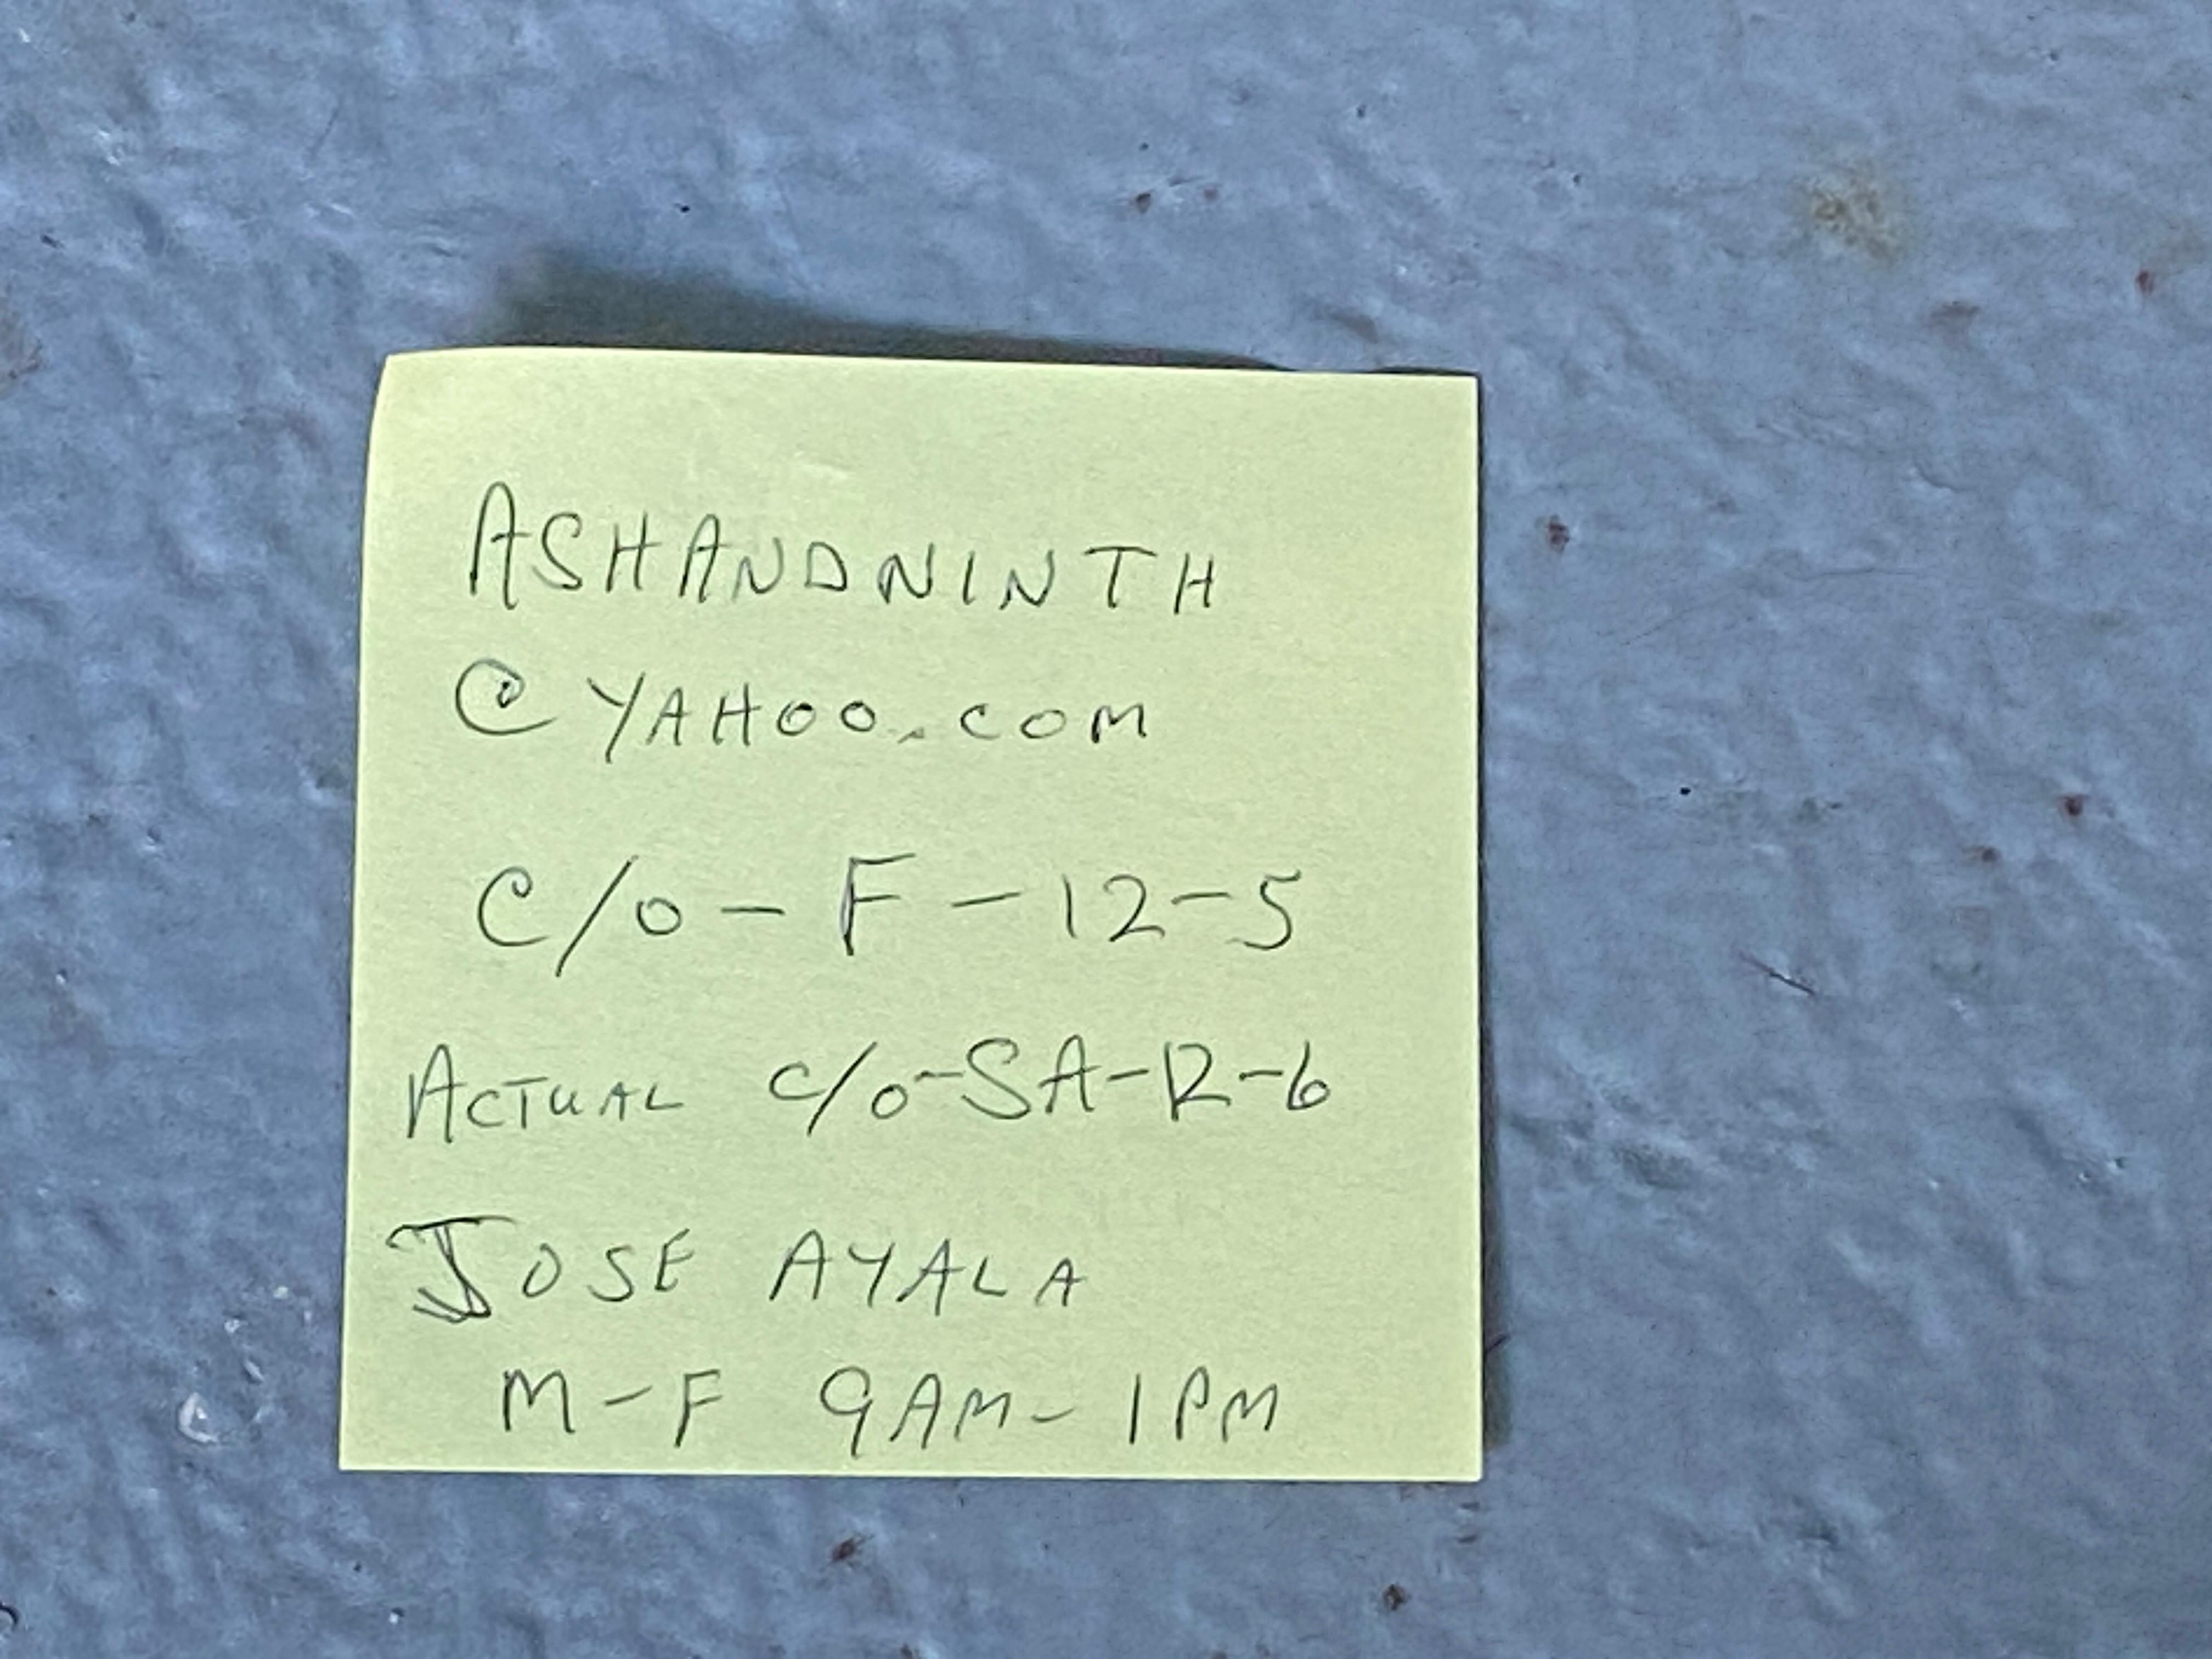 ASHANDNINTH
@YAHOO.COM
C/O - F - 12-5
ACTUAL C/O-SA-12-6
JOSE AYALA
M-F 9AM-1PM